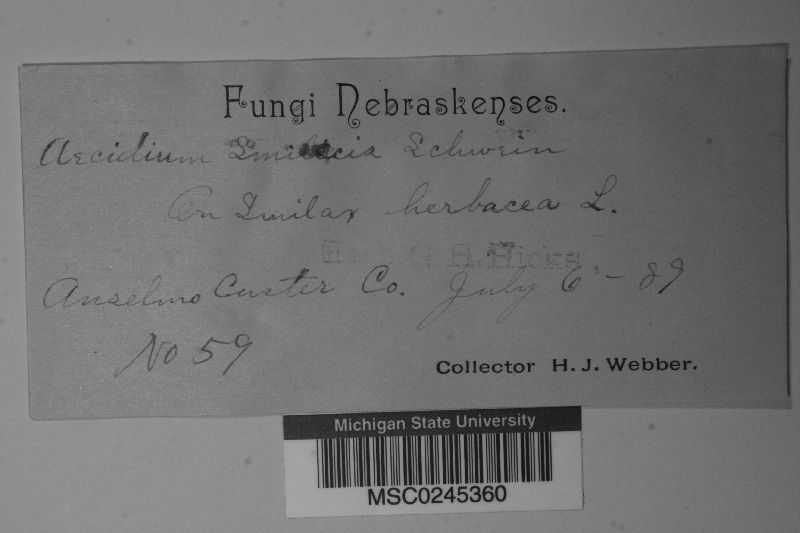 Fungi Nebraskenses.
Aecidium Smilacis Schwein
On Smilax herbacea L.
G. H. Hicks
Anselmo Custer Co. July 6 - 89
No 59
Collector H. J. Webber.
Michigan State University
MSC0245360